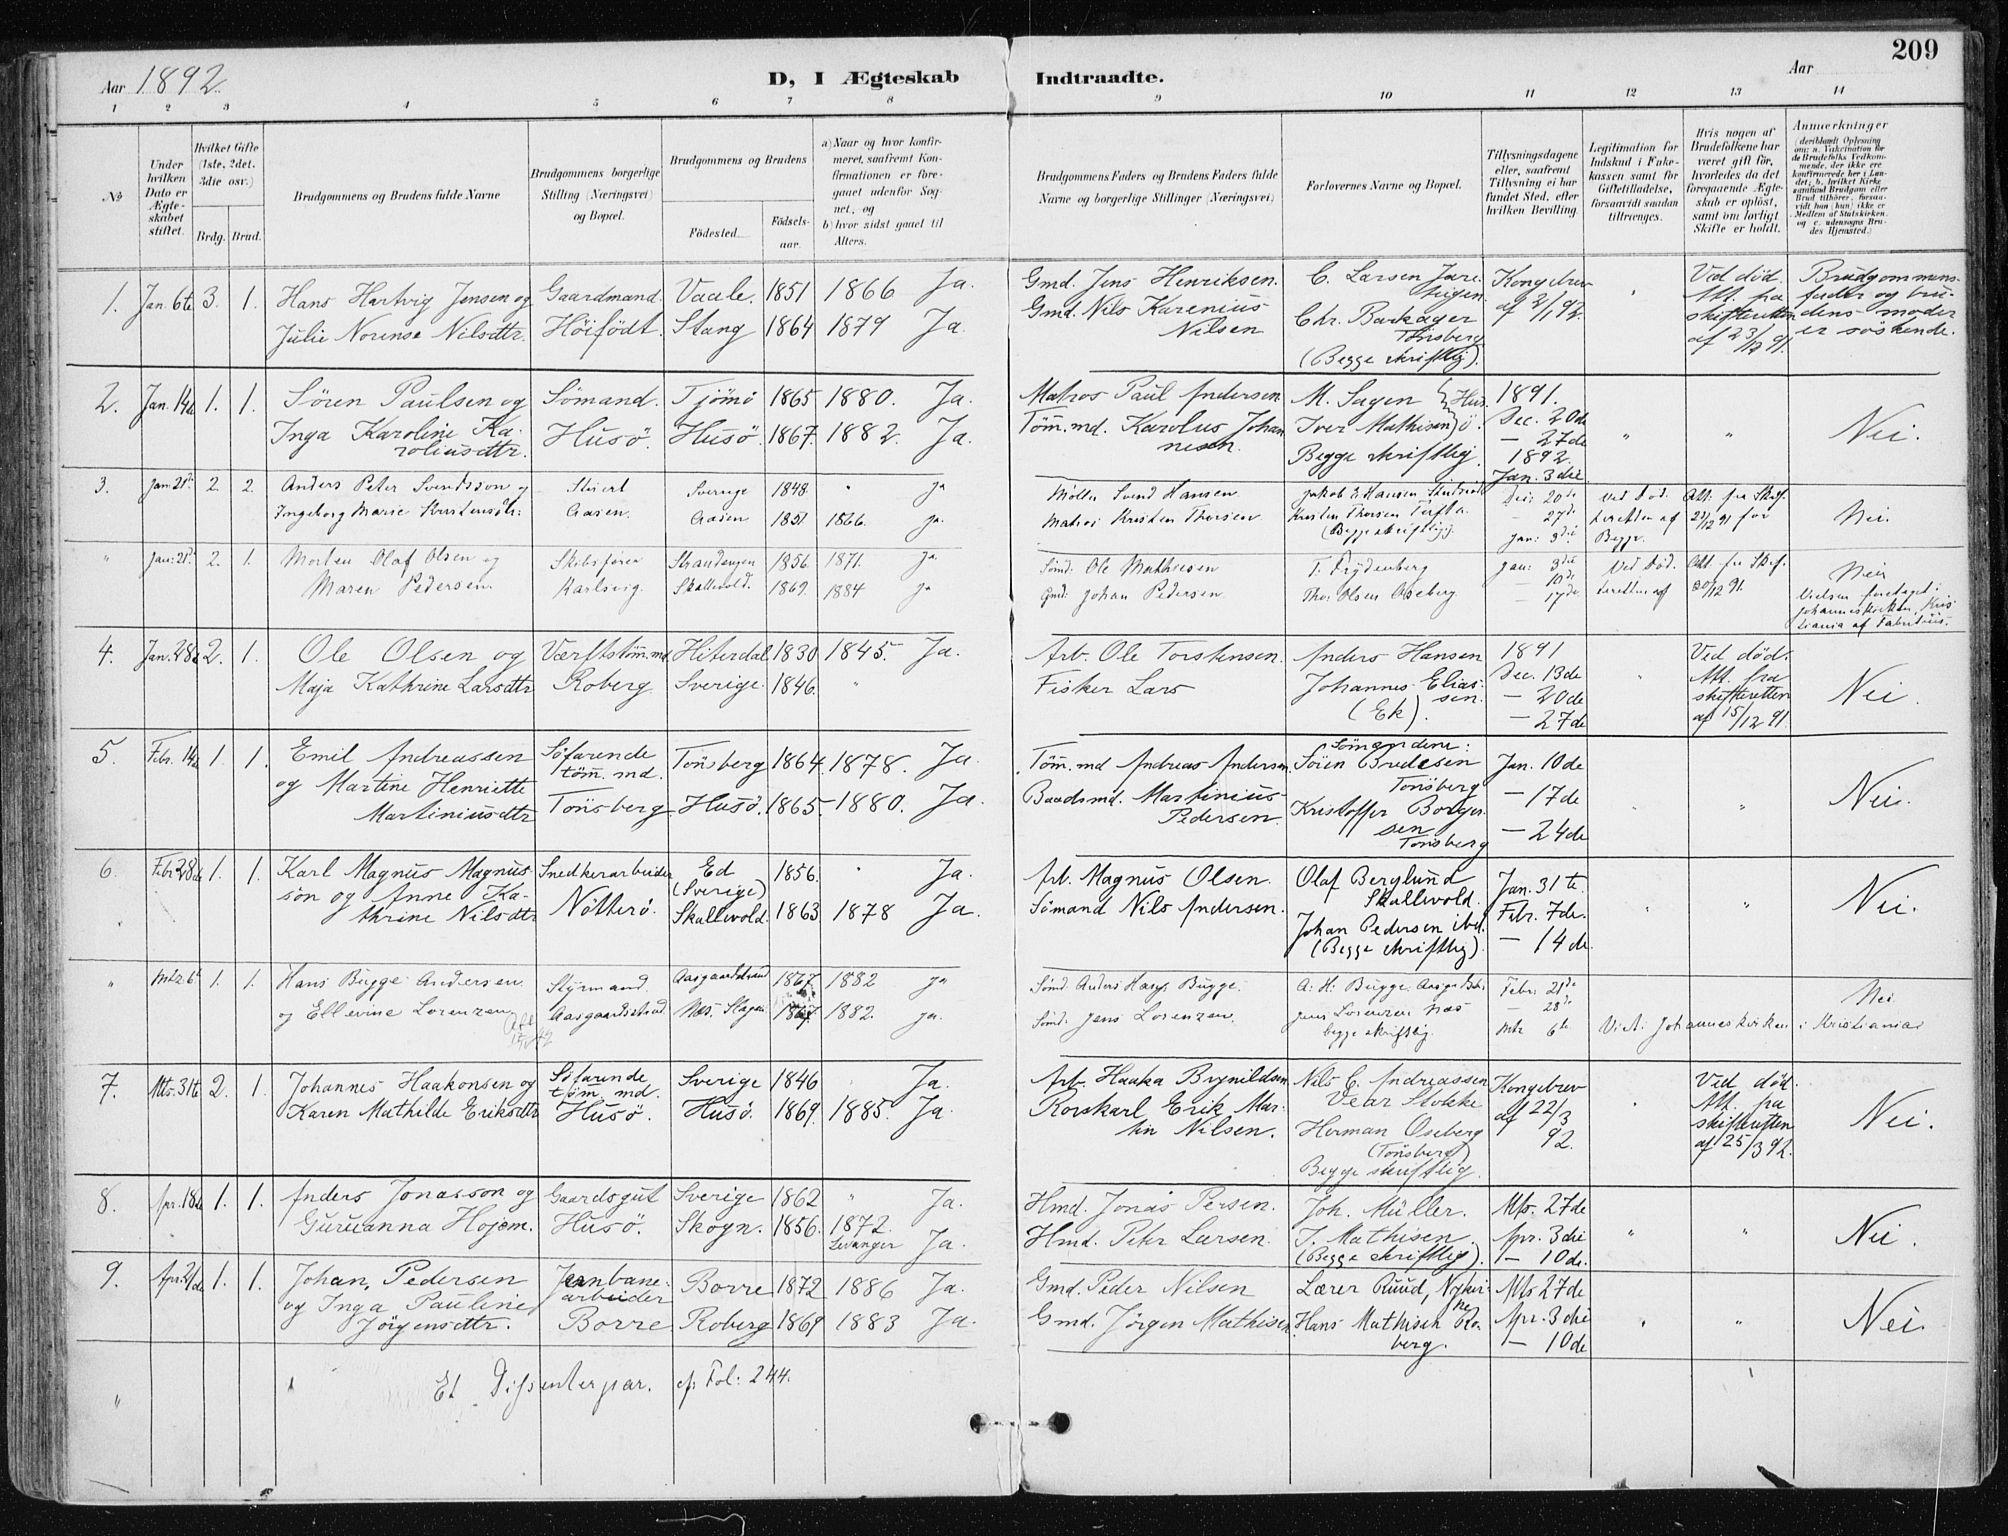 209
Aar 1892
D, I Ægteskab Indtraadte.
Aar
1 2 3 4 5 6 7 8 9 10 11 12 13 14
No
Under hvilken Dato er Ægteskabet stiftet.
Hvilket Gifte (1ste, 2det, 3die osv.)
Brdg. Brud.
Brudgommens og Brudens fulde Navne
Brudgommens borgerlige Stilling (Næringsvei) og Bopæl.
Brudgommens og Brudens
Fødested.
Fødselsaar.
a) Naar og hvor konfirmeret, saafremt Konfirmationen er foregaaet udenfor Sognet, og
b) hvor sidst gaaet til Alters.
Brudgommens Faders og Brudens Faders fulde Navne og borgerlige Stillinger (Næringsvei)
Forlovernes Navne og Bopæl.
Tillysningsdagene eller, saafremt Tillysning ei har fundet Sted, efter hvilken Bevilling.
Legitimation for Indskud i Enkekassen samt for Giftetilladelse, forsaavidt saadan tiltrænges.
Hvis nogen af Brudefolkene har været gift før, hvorledes da det foregaaende Ægteskab er opløst, samt om lovligt Skifte er holdt.
Anmærkninger (deriblandt Oplysning om: a. Vakcination for de Brudefolks Vedkommende, der ikke ere konfirmerede her i Landet; b. hvilket Kirkesamfund Brudgom eller Brud tilhører, forsaavidt han (hun) ikke er Medlem af Statskirken, og c. udensogns Brudes Hjemsted.)
1. Jan. 6te 3. 1. Hans Hartvig Jensen og Gaardmand. Vaale. 1851 1866 Ja. Gmd. Jens Henriksen. C. Larsen Jareteigen. Kongebrev af 2/1 92. Ved død. Att. fra skifteretten af 23/12 91. Brudgommens fader og brudens moder er søskende.
Julie Norense Nilsdtr. Høifødt. Stang 1864 1879 Ja. Gmd. Nils Karenius Nilsen Chr. Barkager Tønsberg (Begge skriftlig).
2. Jan. 14de 1. 1. Søren Paulsen og Sømand. Tjømø 1865 1880. Ja. Matros Paul Andersen M. Sagen } Husø. 1891. Dec. 20de " " Nei.
Inga Karoline Karoliusdtr. Husø. Husø. 1867. 1882. Ja. Tøm.md. Karolus Johannesen. Iver Mathisen Begge skriftlig. — 27de 1892. Jan. 3die
3. Jan. 21de 2. 2. Anders Peter Svendsson og Stuert Sverige 1848. " Ja Møller Svend Hansen Jakob E. Hansen Dec: 20de Ved Død. Att. fra Skifteretten af 23/12 91 for Begge. Nei.
Ingeborg Marie Kristensdtr: Aasen. Aasen 1851 1866. Ja. Matros Kristen Thorsen Kristen Thorsen (Begge skriftlig). — 27de Jan: 3die
" Jan: 21de 2. 1. Morten Olaf Olsen og Skibsfører Strandengen 1856. 1871. Ja Sømd. Ole Mathisen T. Frydenberg Jan: 3die Ved Død. Att. fra Skifteretten af 30/12 91. Nei
Maren Pedersen. Karlsvig. Skallevold. 1869. 1884 Ja Gmd: Johan Pedersen Thor Olsen Oseberg. — 10de — 17de Vielsen foretaget i Johanneskirken, Kristiania af Fabritius.
4. Jan. 28de 2. 1. Ole Olsen og Værftstøm.md. Hiterdal 1830 1845. Ja. Arb. Ole Torstensen. Anders Hansen 1891 Dec. 13de Ved død. Att. fra skifteretten af 15/12 91 Nei.
Maja Kathrine Larsdtr Roberg Sverige. 1846. " Fisker Lars Johannes Eliassen. (Ek). — 20de — 27de
5. Febr. 14de 1. 1. Emil Andreassen Søfarende tøm.md. Tønsberg 1864. 1878. Ja. Tøm.md Andreas Andersen. Sømændene: Søren Bredesen Tønsberg Jan. 10de " Nei.
og Martine Henriette Martiniusdtr Tønsberg Husø. 1865. 1880. Ja. Baadsmd. Martinius Pedersen. Kristoffer Borgersen Tønsberg — 17de — 24de
6. Febr 28de 1. 1. Karl Magnus Magnusson og Anne Kathrine Nilsdtr Snedkerarbeider Nøtterø. Ed (Sverige) 1856. " Ja. Arb. Magnus Olsen. Olaf Berglund Skallevold. Jan. 31te. Nei.
Skallevold. 1863 1878 Ja. Sømand Nils Andersen. Johan Pedersen ibd. (Begge skriftlig). Febr. 7de. — 14de.
" Mts 6te 1. 1. Hans Bugge Andersen Styrmand. Aasgaardstrand 1867. 1882 Ja Sømd. Anders Hans. Bugge. A: H: Bugge. Febr: 21de Nei
og Ellevine Lorenzen Aasgaardstrand. Næs. Slagen. 1867. 1882. Ja. Sømd: Jens Lorenzen. Jens Lorenzen Næs begge skriftlig. — 28de Mts 6te Viet i Johanneskirken i Kristiania
7. Mts. 31te 2. 1. Johannes Haakonsen og Søfarende tøm.md. Sverige 1846 Ja. Arb. Haaka Brynildsen Nils C. Andreassen Vear Stokke Kongebrev af 22/3 92. Ved død. Att. fra skifteretten af 25/3 92. Nei.
Karen Mathilde Eriksdtr Husø. Husø. 1869. 1885. Ja Rorskarl Erik Martin Nilsen. Herman Oseberg (Tønsberg) Begge skriftlig.
8. Apr. 18de 1. 1. Anders Jonasson og Gaardsgut Sverige 1862 " Ja. Hmd. Jonas Persen. Joh. Müller. Mts. 27de " " Nei.
Guruanna Hojem. Husø. Skogn. 1856. 1872. Levanger Ja. Hmd. Peter Larsen. I. Mathisen. (Begge skriftlig). Apr. 3die — 10de.
9. Apr. 21de 1. 1. Johan Pedersen Jernbanearbeider Borre 1872 1886 Ja. Gmd. Peder Nilsen Lærer Ruud, Nykirke Mts 27de " Nei.
og Inga Pauline Jørgensdtr. Borre Roberg 1869 1883 Ja. Gmd. Jørgen Mathisen. Hans Mathisen Roberg. Apr. 3die — 10de
" Et Dissenterpar. cfr Fol: 244.